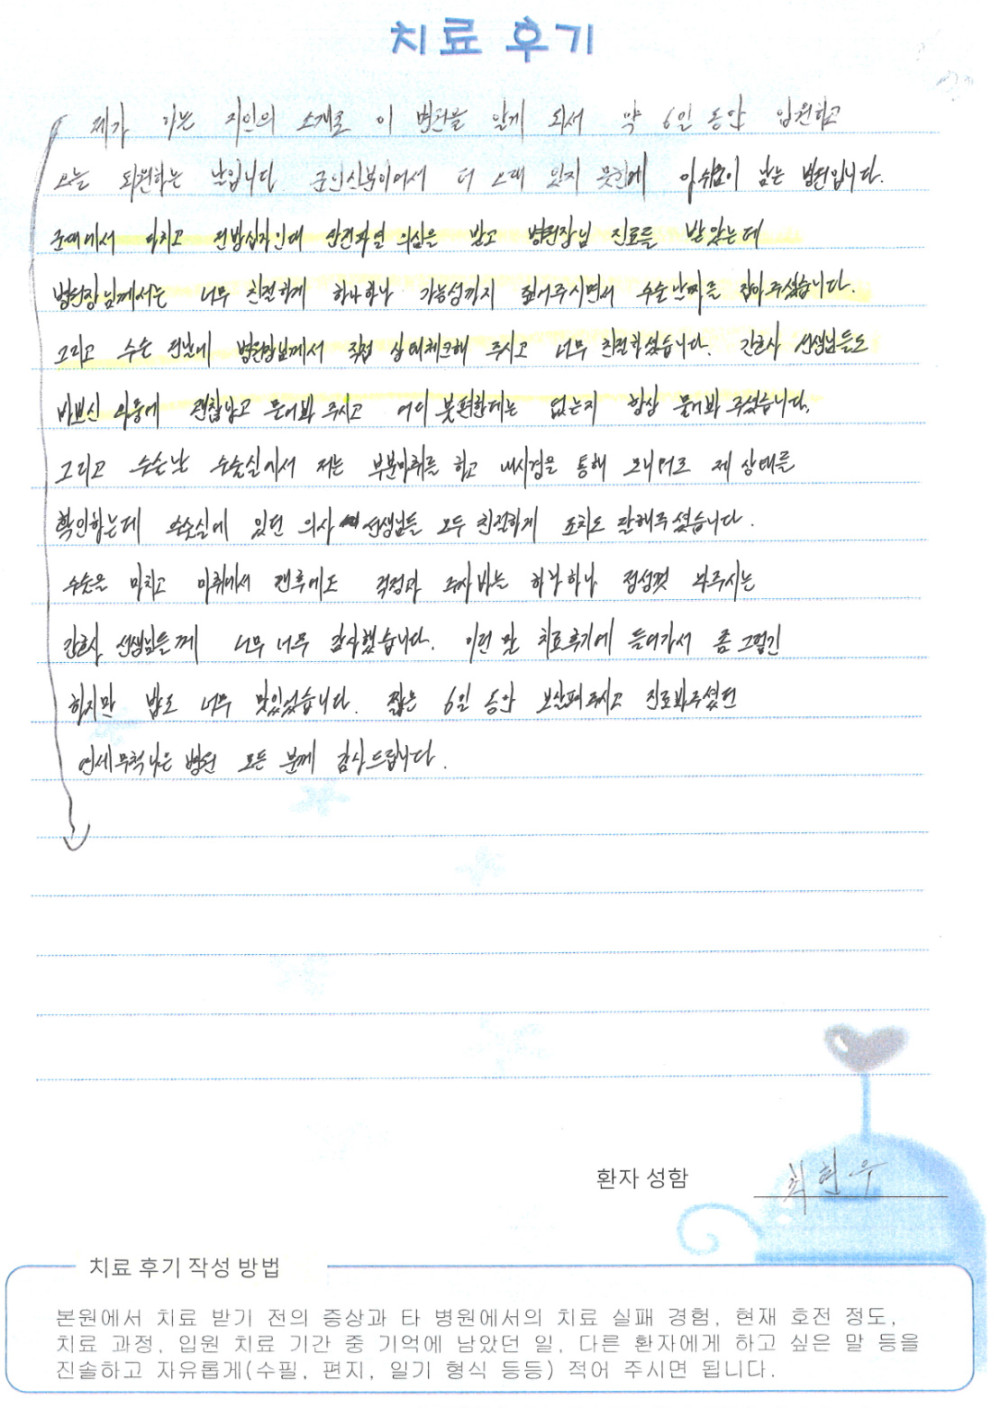 치료 후기
제가 아는 지인의 소개로 이 병원을 알게 되서 약 6일 동안 입원하고
오늘 퇴원하는 날입니다. 군인신분이어서 더 오래 있지 못한게 아쉬움이 남는 병원입니다.
군대에서 다치고 전방십자인대 완전파열 의심을 받고 병원장님 진료를 받았는데
병원장님께서는 너무 친절하게 하나하나 가능성까지 짚어주시면서 수술날짜를 잡아주셨습니다.
그리고 수술 전날에 병원장님께서 직접 상태체크해 주시고 너무 친절하셨습니다. 간호사 선생님들도
바쁘신 와중에 괜찮냐고 물어봐 주시고 어디 불편한데는 없는지 항상 물어봐 주셨습니다.
그리고 수술날 수술실에서 저는 부분마취를 하고 내시경을 통해 모니터로 제 상태를
확인하는데 수술실에 있던 의사 선생님들 모두 친절하게 조치도 잘해주셨습니다.
수술을 마치고 마취에서 깬후에도 걱정과 주사바늘 하나하나 정성껏 놔주시는
간호사 선생님들께 너무 너무 감사했습니다. 이런 말 치료후기에 들어가서 좀 그렇긴
하지만 밥도 너무 맛있었습니다. 짧은 6일 동안 보살펴주시고 진료봐주셨던
연세무척나은 병원 모든 분께 감사드립니다.
환자 성함 최현우
치료 후기 작성 방법
본원에서 치료 받기 전의 증상과 타 병원에서의 치료 실패 경험, 현재 호전 정도,
치료 과정, 입원 치료 기간 중 기억에 남았던 일, 다른 환자에게 하고 싶은 말 등을
진솔하고 자유롭게(수필, 편지, 일기 형식 등등) 적어 주시면 됩니다.